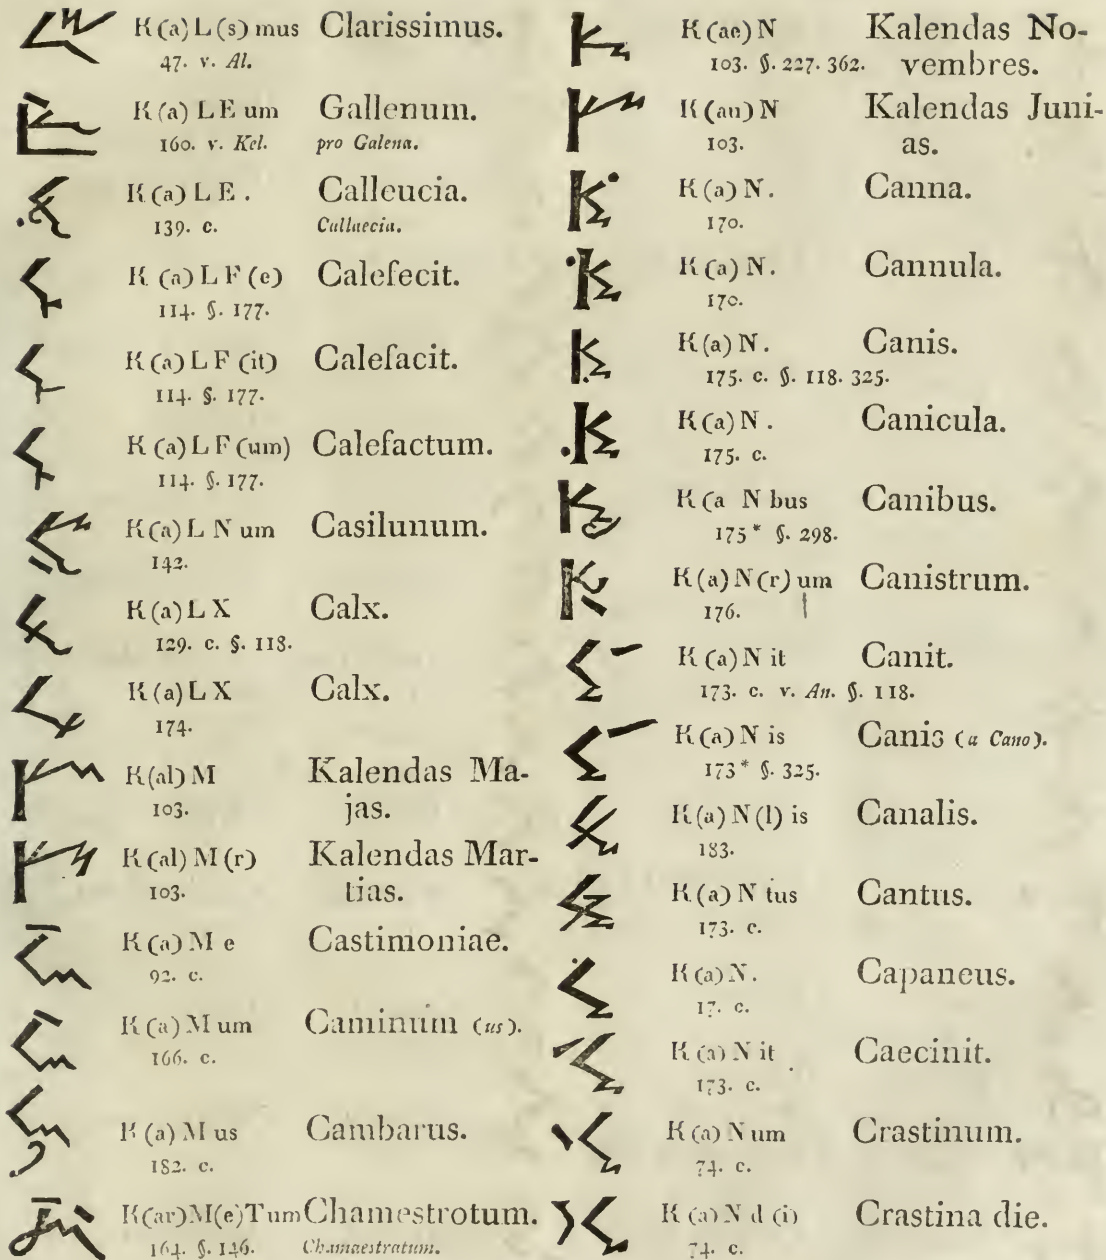 K(a)L(s)mus Clarissimus.
47. v. Al.
K(a)LEum Gallenum.
160. v. Kel. pro Galena.
K(a)LE. Calleucia.
139. c. Callaecia.
K(a)LF(e) Calefecit.
114. §. 177.
K(a)LF(it) Calefacit.
114. §. 177.
K(a)LF(um) Calefactum.
114. §. 177.
K(a)LNum Casilunum.
142.
K(a)LX Calx.
129. c. §. 118.
K(a)LX Calx.
174.
K(al)M Kalendas Ma-
103. jas.
K(al)M(r) Kalendas Mar-
103. tias.
K(a)Me Castimoniae.
92. c.
K(a)Mum Caminum (us).
166. c.
K(a)Mus Cambarus.
182. c.
K(ar)M(e)Tum Chamestrotum.
164. §. 146. Chamaestratum.
K(ae)N Kalendas No-
103. §. 227. 362. vembres.
K(an)N Kalendas Juni-
103. as.
K(a)N. Canna.
170.
K(a)N. Cannula.
170.
K(a)N. Canis.
175. c. §. 118. 325.
K(a)N. Canicula.
175. c.
K(a N bus Canibus.
175* §. 298.
K(a)N(r)um Canistrum.
176.
K(a)Nit Canit.
173. c. v. An. §. 118.
K(a)Nis Canis (a Cano).
173* §. 325.
K(a)N(l)is Canalis.
183.
K(a)Ntus Cantus.
173. c.
K(a)N. Capaneus.
17. c.
K(a)Nit Caecinit.
173. c.
K(a)Num Crastinum.
74. c.
K(a)Nd(i) Crastina die.
74. c.